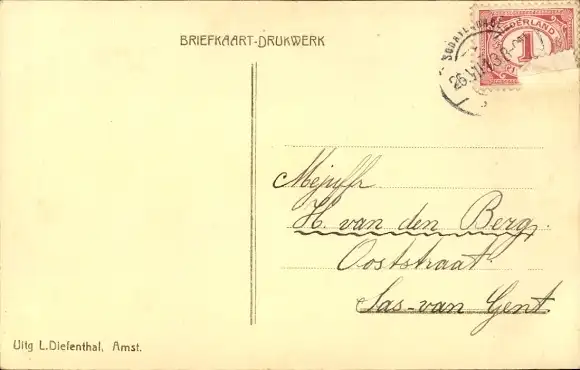 BRIEFKAART-DRUKWERK
NEDERLAND
1
Mejuffr.
H. van den Berg.
Ooststraat
Sas-van Gent
Uitg L.Diefenthal, Amst.